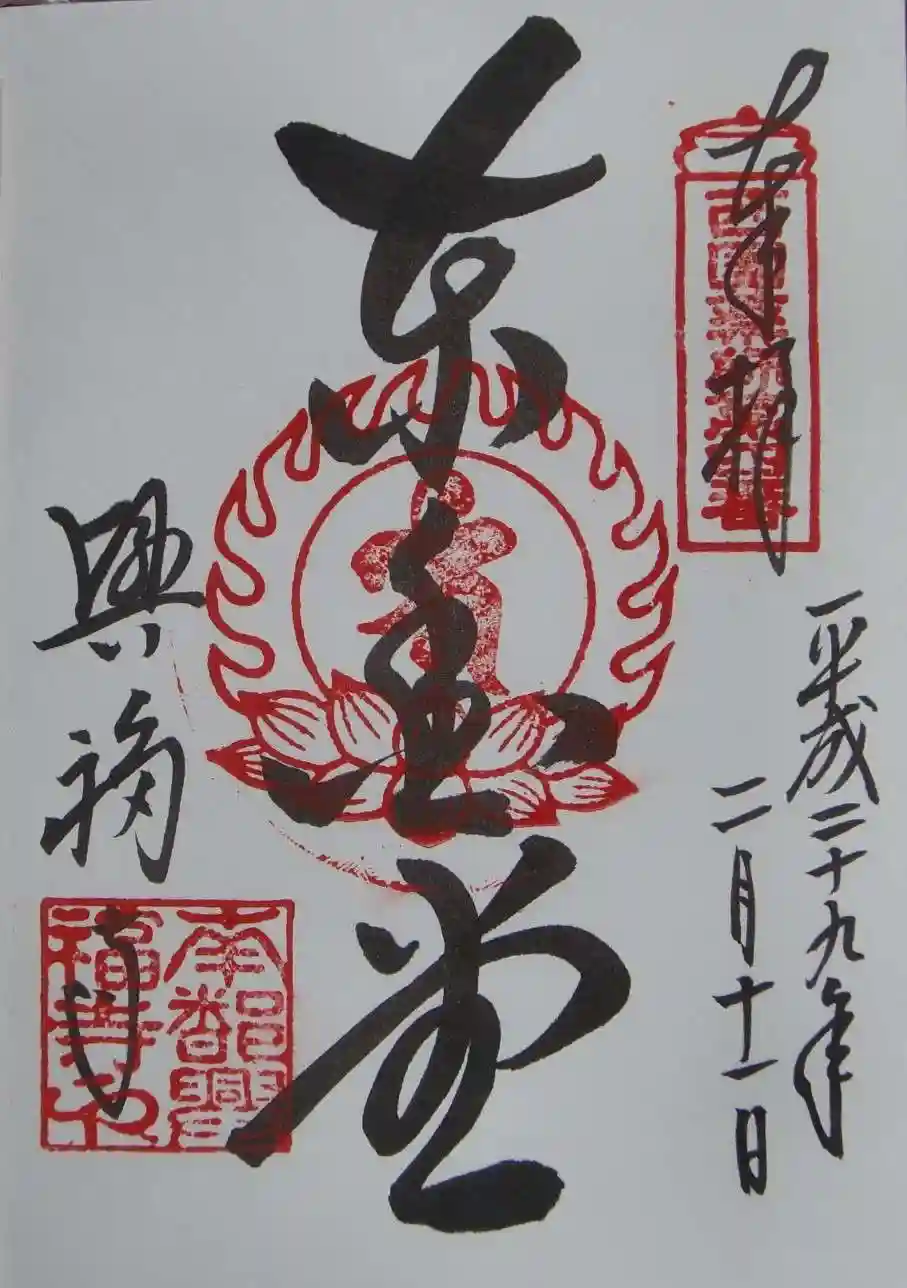 奉拝
平成二十九年
二月十一日
東金堂
興福寺
南都興福寺印